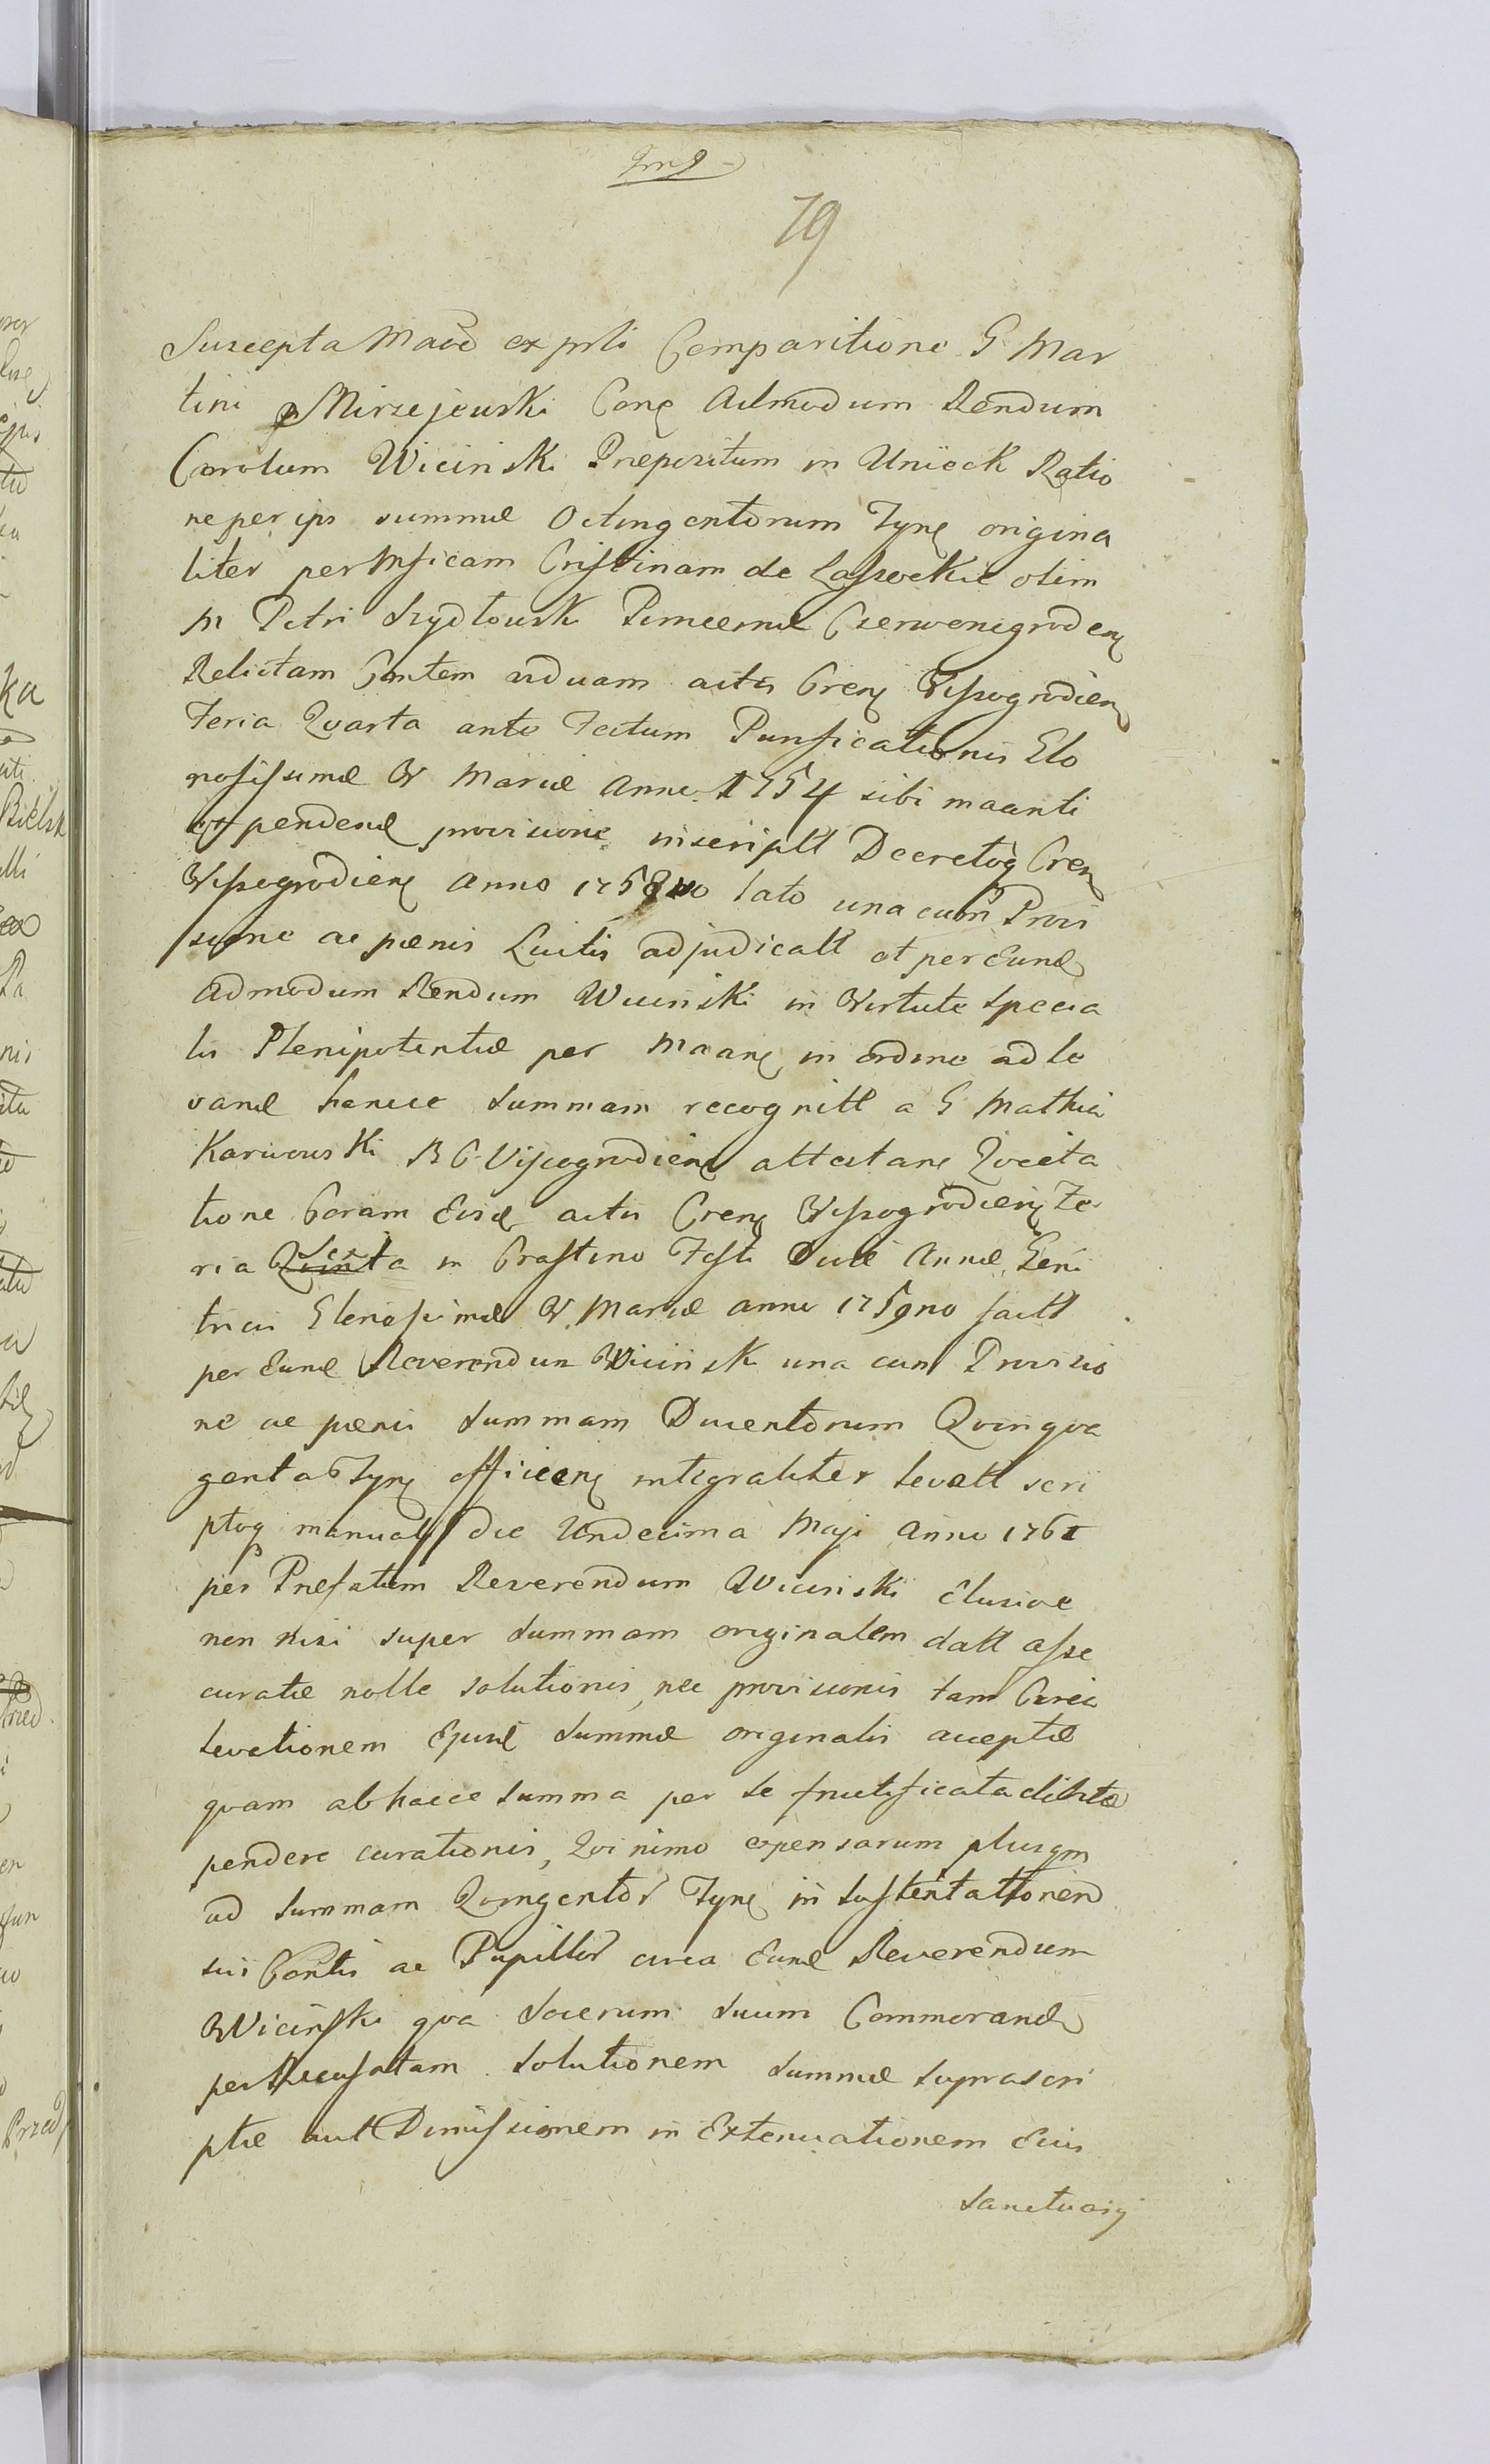 79
Suscepta Maõe ex prti Comparitione G Mar
tini Mirzejewski Conę Admodum Rendum
Carolum Wicinski Prepositum in Unieck Ratio
ne per ips summæ Octingentorum Tynę origina
liter per Mficam Cristinam de Lassockie olim
M Petri Szydłowski Pincernæ Czerwonogrodenę
Relictam Contem viduam actis Crenę Wyssogrodienę
Feria Qvarta ante Festum Purificationis Glo
riosissimæ V Mariæ Anno 1754 sibi maanti
et pendendæ provisione inscriptt Decretoq Crenę
Wyssogrodienę Anno 1758vo lato una cum Provi
sione ac pænis Luitis adjudicatt et per Eund
Admodum Rendum Wicinski in Virtute Specia
lis Plenipotentiæ per Maanę in ordine ad le
vand hancce Summam recognitt a G Mathia
Karwowski B C Vissogrodienę attestanę Qvieta
tione Coram Eisd actis Crenę Wyssogrodienę Fe
ria Qvinta Sex in Crastino Festi Divæ Annæ Geni
tricis Gloriosissimæ V. Mariæ anno 1759no factt
per Eund Reverendum Wicinski una cum Provisio
ne ac pænis Summam Ducentorum Qvinqva
genta Tynę efficienę integraliter levatt scri
ptoq manuali die Undecima Maji Anno 1761
per Prefatum Reverendum Wicinski Elusive
non nisi super Summam originalem datt asse
curatæ nolle solutionis, nec provisionis tam Circa
levationem Ejusd Summæ originalis acceptæ
qvam ab hacce Summa per se fructificata debite
pendere curationis, Qvinimo expensarum plusqm
ad Summam Qvingentor Tynę in Sustentationem
sui Contis ac Pupillor circa Eund Reverendum
Wicinski qva Socerum Suum Commorand
per Recusatam Solutionem Summæ Suprascri
ptæ aut Dimissionem in Extenuationem Eius
Sanctuarij